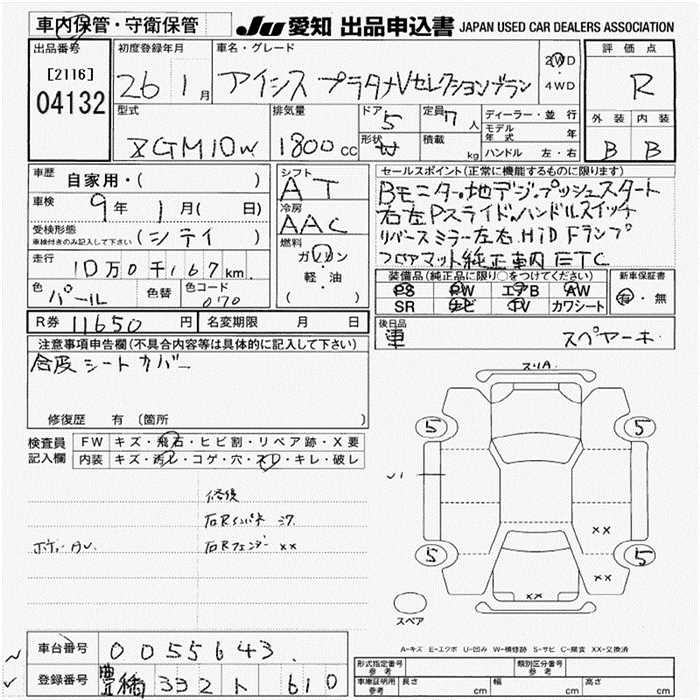 車内保管・守衛保管
JU 愛知 出品申込書 JAPAN USED CAR DEALERS ASSOCIATION
出品番号
[2116]
04132
初度登録年月
26 1月
車名・グレード
アイシス プラタナVセレクションブラン
2WD
4WD
評価点
R
型式
ZGM10W
排気量
1800cc
ドア
5
形状
W
定員 7人
積載 kg
ディーラー・並行
モデル年式 年
ハンドル 左・右
外装
B
内装
B
車歴 自家用・( )
車検 9年 1月( 日)
受検形態
車検付きのみ記入して下さい
(シティ)
走行 10万0千167km
色 パール
色替
色コード 070
シフト
AT
冷房
AAC
燃料
ガソリン
軽・油
( )
セールスポイント(正常に機能するものに限ります)
Bモニター.地デジ.プッシュスタート
右左Pスライド.ハンドルスイッチ
リバースミラー左右.HIDFランプ
フロアマット純正車内ETC
装備品(純正品に限り○をつけてください)
PS PW エアB AW
SR ナビ TV カワシート
新車保証書
有・無
R券 11650円
名変期限 月 日
後日品
車 スペヤーキー
注意事項申告欄(不具合内容等は具体的に記入して下さい)
合皮シートカバー
修復歴 有(箇所 )
検査員記入欄
FW キズ・飛石・ヒビ割・リペア跡・X要
内装 キズ・汚レ・コゲ・穴・スレ・キレ・破レ
修復
右Rインパネ
ボディー
右Rフェンダー ××
スリA
5
5
5
5
√1
××
××
××
スペア
A-キズ E-エクボ U-凹み W-補修跡 S-サビ C-腐食 XX-交換済
車台番号 0055643
登録番号 豊橋 332 ト 610
形式指定番号
参考
類別区分番号
参考
車庫証明用
参考
長さ cm
幅 cm
高さ cm